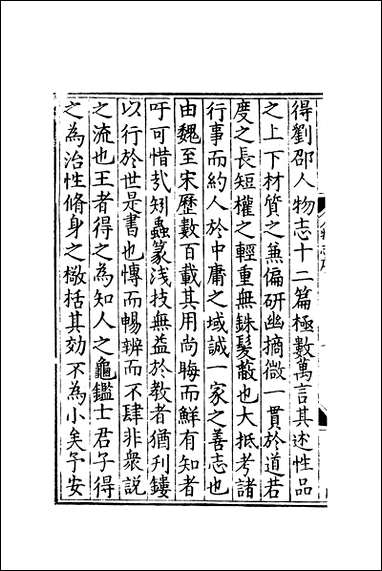 得劉邵人物志十二篇極數萬言其述性品
之上下材質之蒹偏研幽摘微一貫於道若
度之長短權之輕重無銖髮蔽也大抵考諸
行事而約人於中庸之域誠一家之善志也
由魏至宋歷數百載其用尚晦而鮮有知者
吁可惜㢤矧蟲篆浅技無益於教者猶刋鏤
以行於世是書也愽而暢辨而不肆非衆說
之流也王者得之為知人之龜鑑士君子得
之為治性脩身之檄括其効不為小矣予安